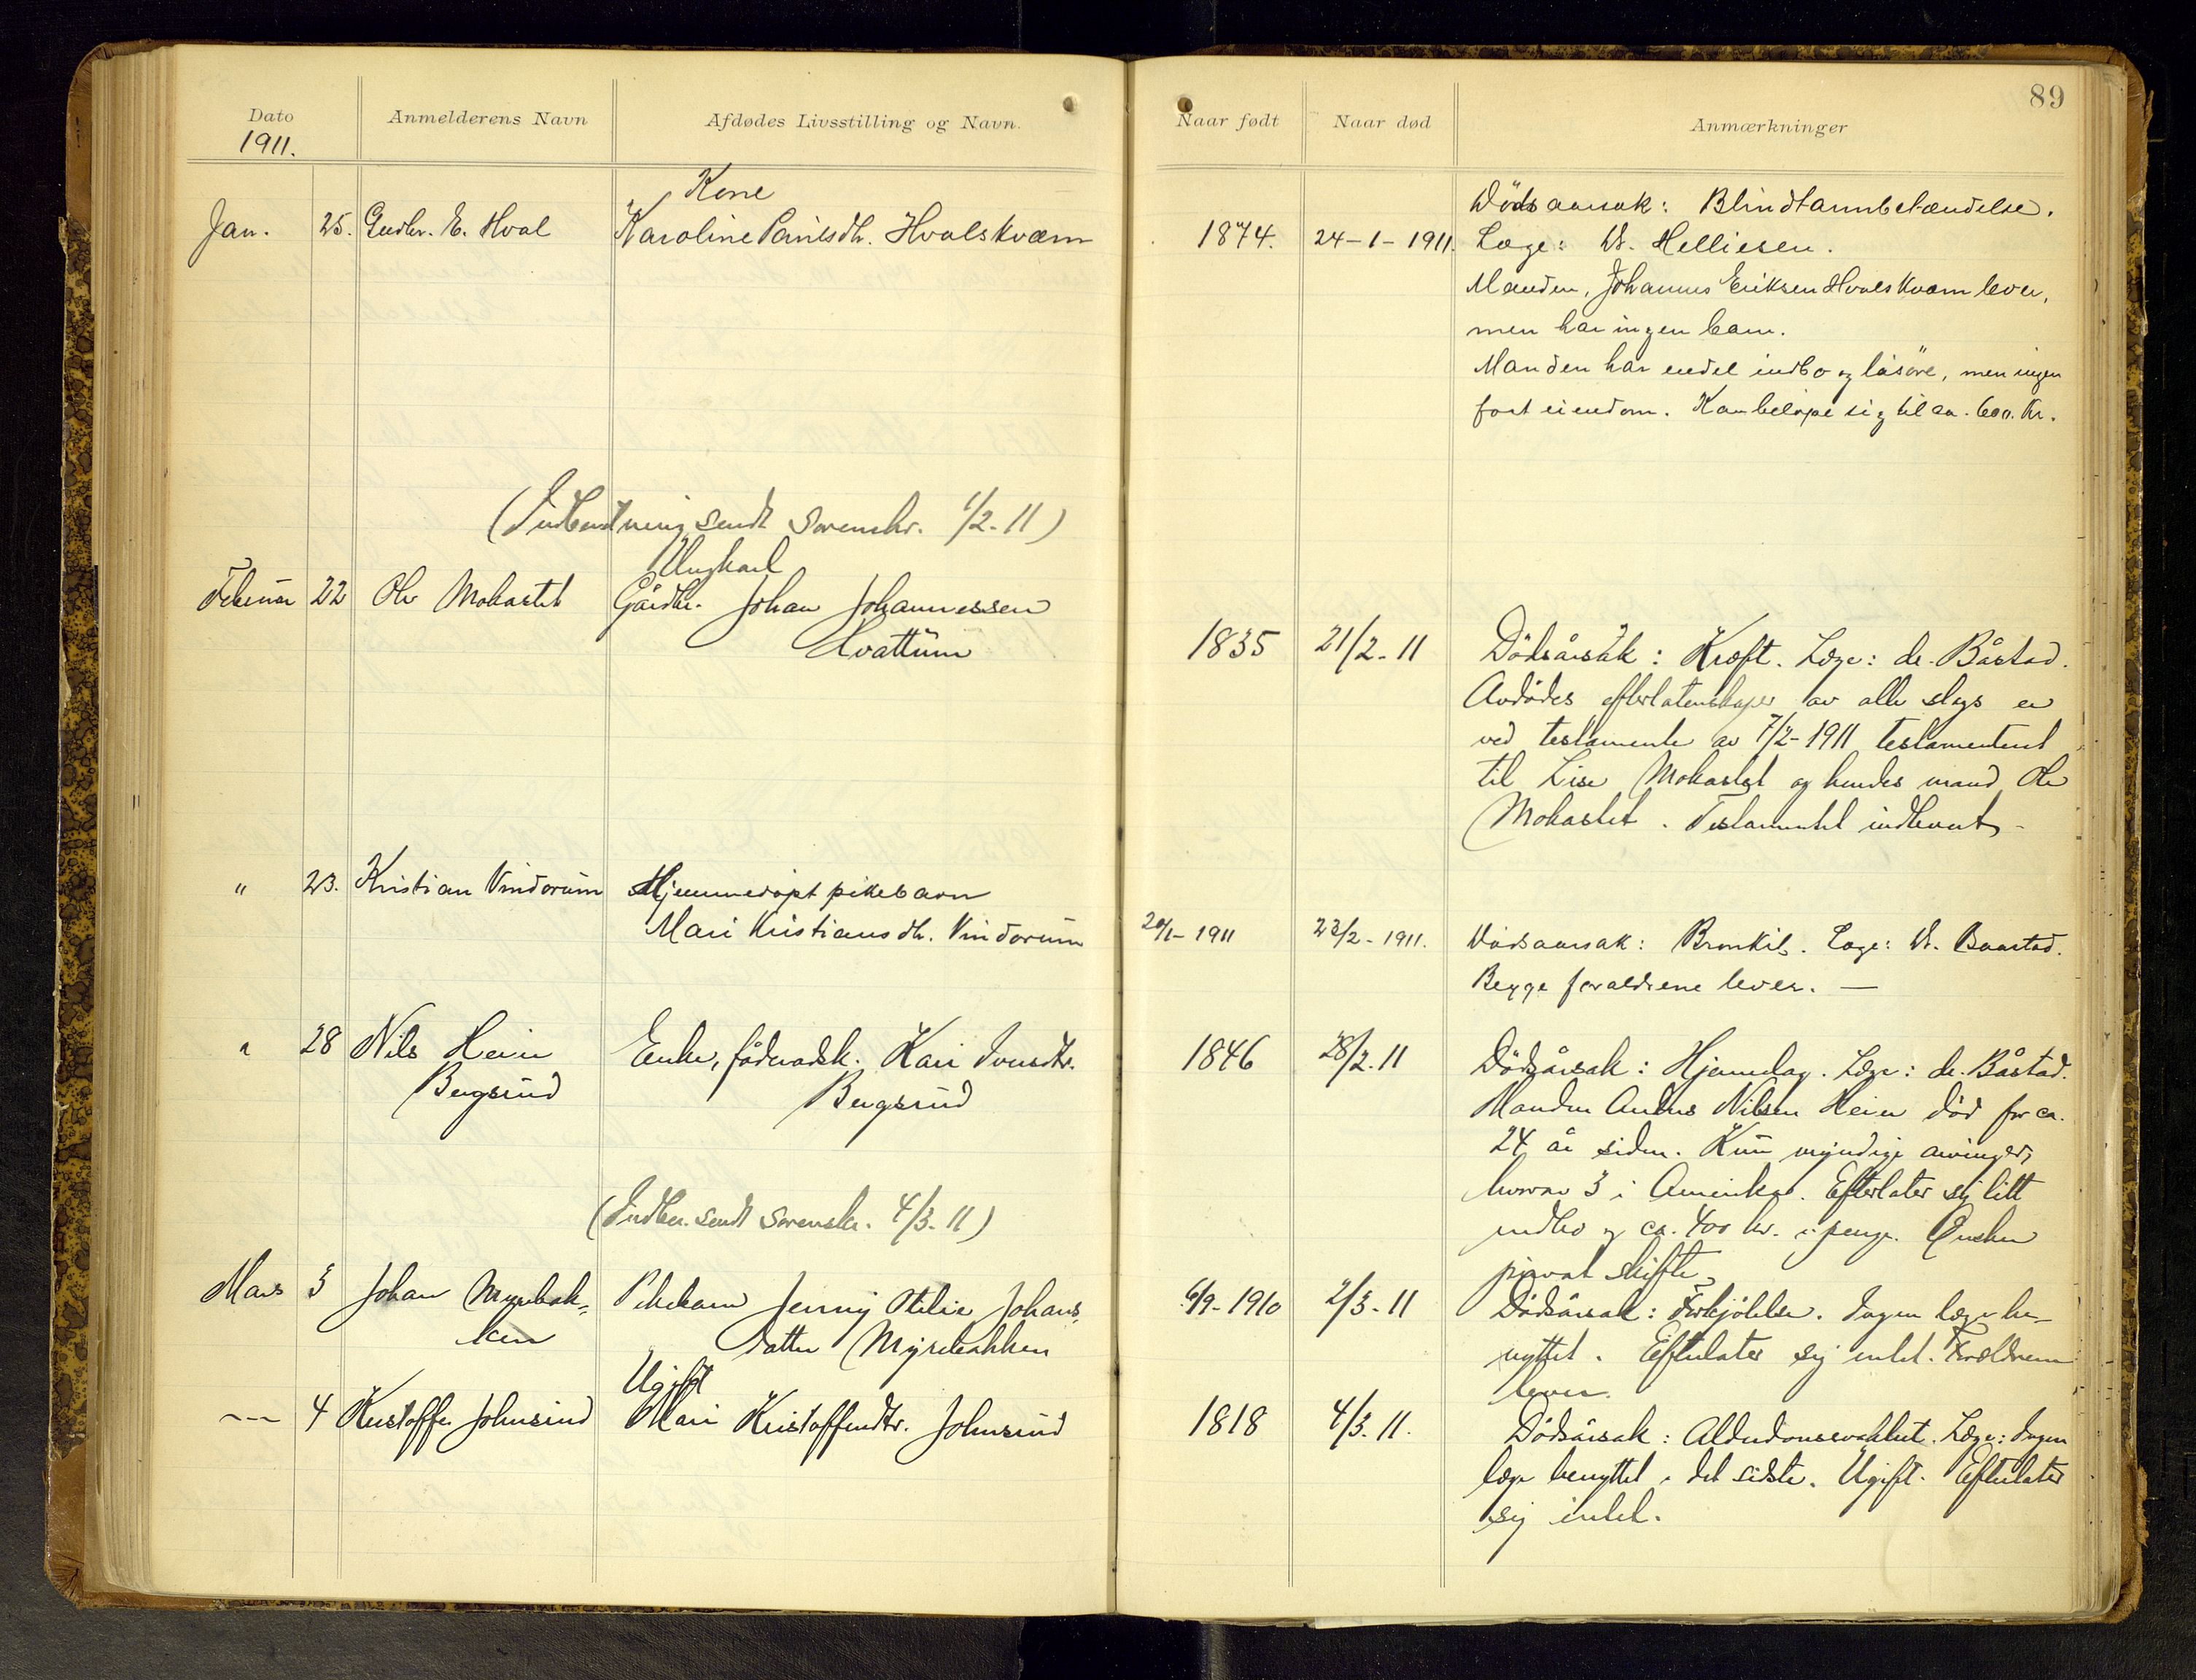 89
Dato
1911.
Anmelderens Navn
Afdødes Livsstilling og Navn.
Naar født
Naar død
Anmærkninger
Jan. 25. Gudbr. E. Hval
Kone
Karoline Paulsdtr. Hvalskvæm
1874. 24-1-1911.
Dödsaarsak: Blindtarmbetændelse.
Læge: Dr. Helliesen.
Manden, Johannes Eriksen Hvalskvæm lever,
men har ingen barn.
Manden har endel indbo og lösöre, men ingen
fast eiendom. Kan belöpe sig til ca. 600. Kr.
(Indberetning sendt Sorenskr. 1/2-11)
Februar 22 Ole Mokastet
Ungkarl
Gårdbr. Johan Johannessen
Kvattum
1835 21/2-11
Dödsårsak: Kræft. Læge: dr. Båstad.
Avdödes efterlatenskaper av alle slags er
ved testamente av 7/2-1911 testamentert
til Lise Mokastet og hendes mand Ole
Mokastet. Testamentet indlevert.
" 23. Kristian Vindorum
Hjemmedöpt pikebarn
Mari Kristiansdtr. Vindorum
20/1-1911 23/2-1911.
Dödsaarsak: Bronkit. Læge: Dr. Baastad.
Begge forældrene lever. —
" 28 Nils Heier
Bergsrud
Enke, föderådsk. Kari Iversdtr.
Bergsrud
1846 28/2.11
Dödsårsak: Hjerneslag. Læge: dr. Båstad.
Manden Anders Nilsen Heier död for ca.
24 år siden. Kun myndige arvinger,
hvorav 3 i Amerika. Efterlater sig litt
indbo og ca. 400 kr. i penge. Ønsker
privat skifte.
(Indber. sendt Sorenskr. 4/3-11)
Mars 3 Johan Myrebak-
ken
Pikebarn Jenny Otilie Johans-
datter Myrebakken
6/9-1910 2/3-11
Dödsårsak: Forkjölelse. Ingen læge be-
nyttet. Efterlater sig intet. Forældrene
lever.
-"- 4 Kristoffer Johnsrud
Ugift
Mari Kristoffersdtr. Johnsrud
1818 4/3.11.
Dödsårsak: Alderdomssvakhet. Læge: Ingen
læge benyttet i det sidste. Ugift. Efterlater
sig intet.